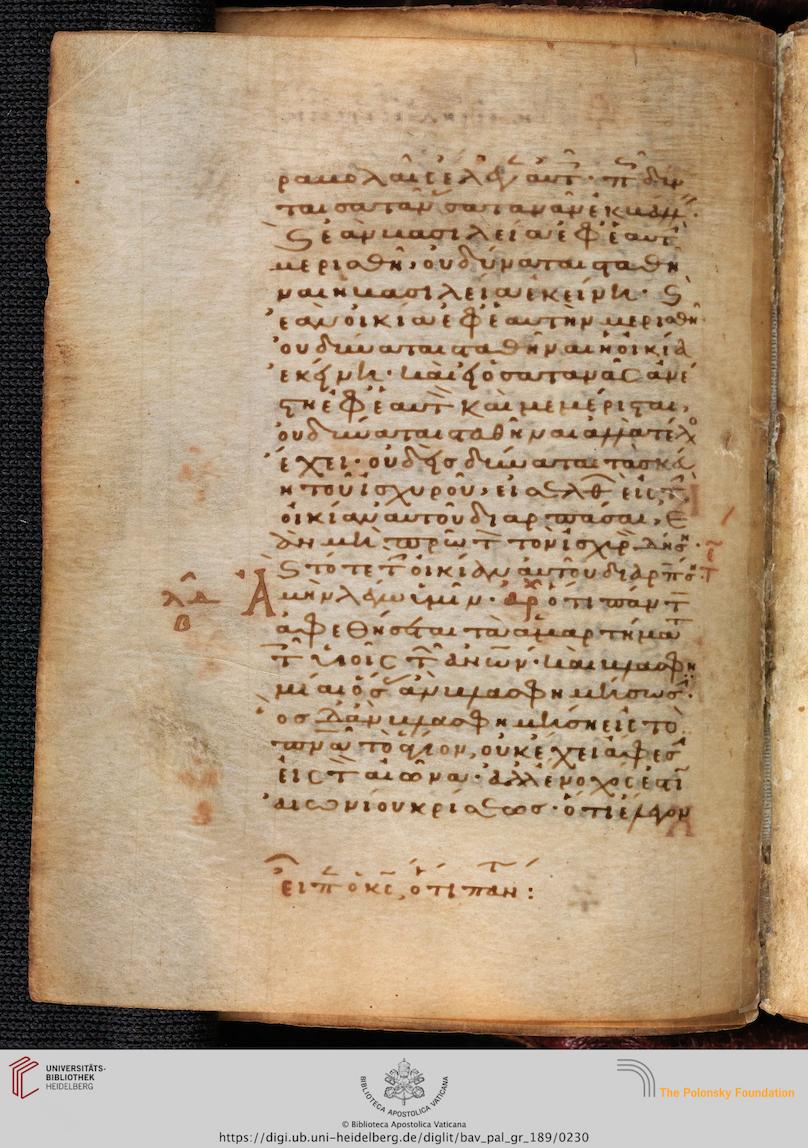 ραβολαῖς ἔλεγεν αὐτοῖς· πῶς δύνα
ται σατανᾶς σατανᾶν ἐκβάλλειν·
καὶ ἐὰν βασιλεία ἐφ ἑαυτὴν
μερισθῆ, οὐ δύναται σταθῆ
ναι ἡ βασιλεία ἐκείνη· καὶ
ἐὰν οἰκία ἐφ ἑαυτὴν μερισθῆ
οὐ δύναται σταθῆναι ἡ οἰκία
ἐκείνη· καὶ εἰ ὁ σατανᾶς ἀνέ
στη ἐφ ἑαυτὸν καὶ μεμέρισται,
οὐ δύναται σταθῆναι ἀλλὰ τέλος
ἔχει· οὐδεὶς δύναται τὰ σκεύ
η τοῦ ἰσχυροῦ, εἰσελθὼν εἰς τὴν
οἰκίαν αὐτοῦ διαρπάσαι, ἐ
ὰν μὴ πρῶτον τὸν ἰσχυρὸν δήση·
καὶ τότε τὴν οἰκίαν αὐτοῦ διαρπάσει·
λδ Ἀμὴν λέγω ὑμῖν· ὅτι πάντα
β
ἀφεθήσεται τὰ ἁμαρτήματα
τοῖς υἱοῖς τῶν ἀνων· καὶ βλασφη
μίαι ὅσας ἂν βλασφημήσωσιν·
ὃς δ ἂν βλασφημήση εἰς τὸ
πνα τὸ ἅγιον, οὐκ ἔχει ἄφεσιν
εἰς τὸν αἰῶνα· ἀλλ ἔνοχός ἐστιν
αἰωνίου κρίσεως· ὅτι ἔλεγον
εἶπεν ὁ κς, ὅτι πάντα:
UNIVERSITÄTS-
BIBLIOTHEK
HEIDELBERG
BIBLIOTECA APOSTOLICA VATICANA
The Polonsky Foundation
© Biblioteca Apostolica Vaticana
https://digi.ub.uni-heidelberg.de/diglit/bav_pal_gr_189/0230